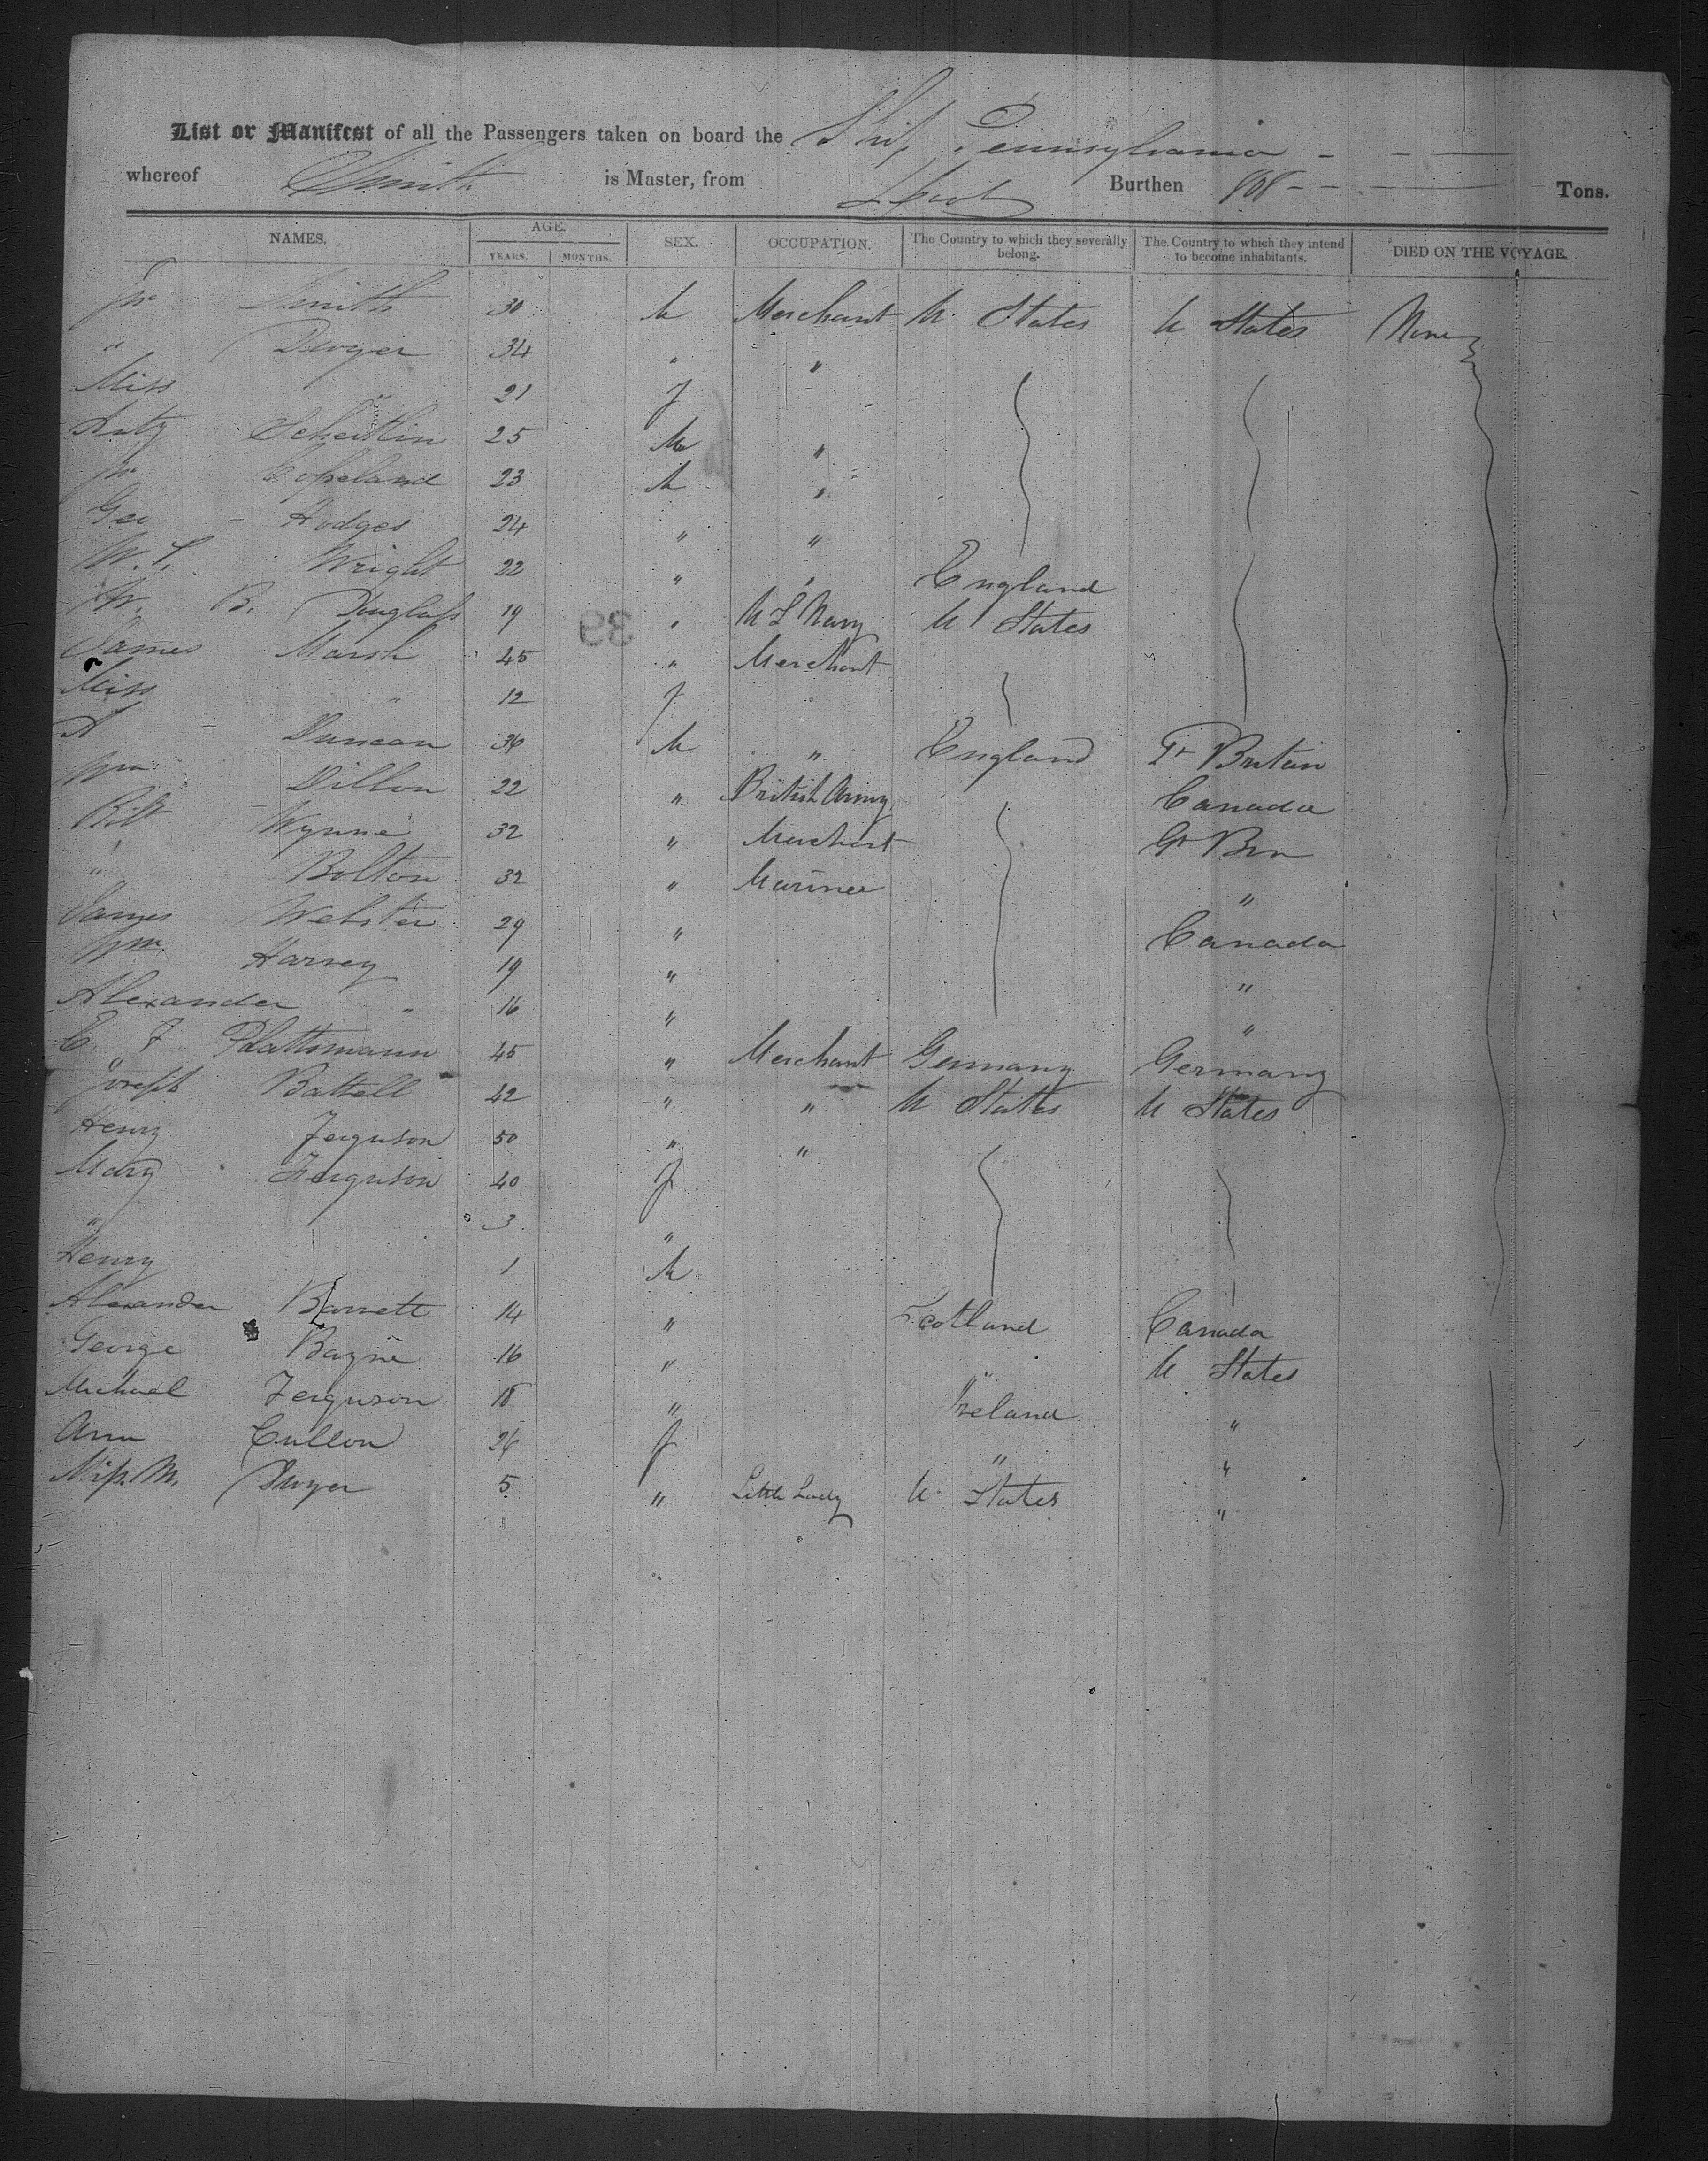 List or Manifest of all the Passengers taken on board the Ship Pennsylvania
whereof Smith is Master, from Lpool Burthen 808 Tons.
NAMES. AGE. YEARS. MONTHS. SEX. OCCUPATION. The Country to which they severally belong. The Country to which they intend to become inhabitants. DIED ON THE VOYAGE.
Jno Smith 30 M Merchant U States U States None
" Dwyer 34 " "
Miss " 21 f
Scheitlin 25 M "
Jno Copeland 23 M "
Geo Hodges 24 " "
W. S. Wright 22 " " England
W. B. Douglass 19 " U S Navy U States
James Marsh 45 " Merchant
Miss " 12 f
A Duncan 36 M " England Gt Britain
Wm Dillon 22 " British Army Canada
Robt Wynne 32 " Merchant Gt Brn
" Bolton 32 " Mariner "
James Webster 29 " Canada
Wm. Harvey 19 " "
Alexander " 16 " "
C F Plattsmann 45 " Merchant Germany Germany
Joseph Battell 42 " " U States U States
Henry Ferguson 50 " "
Mary Ferguson 40 f
" 3 "
Henry 1 M
Alexander Barrett 14 " Scotland Canada
George Bayne 16 " " U States
Michael Ferguson 18 " Ireland "
Ann Cullon 26 f " "
Miss M. Dwyer 5 " Little Lady U States "
39